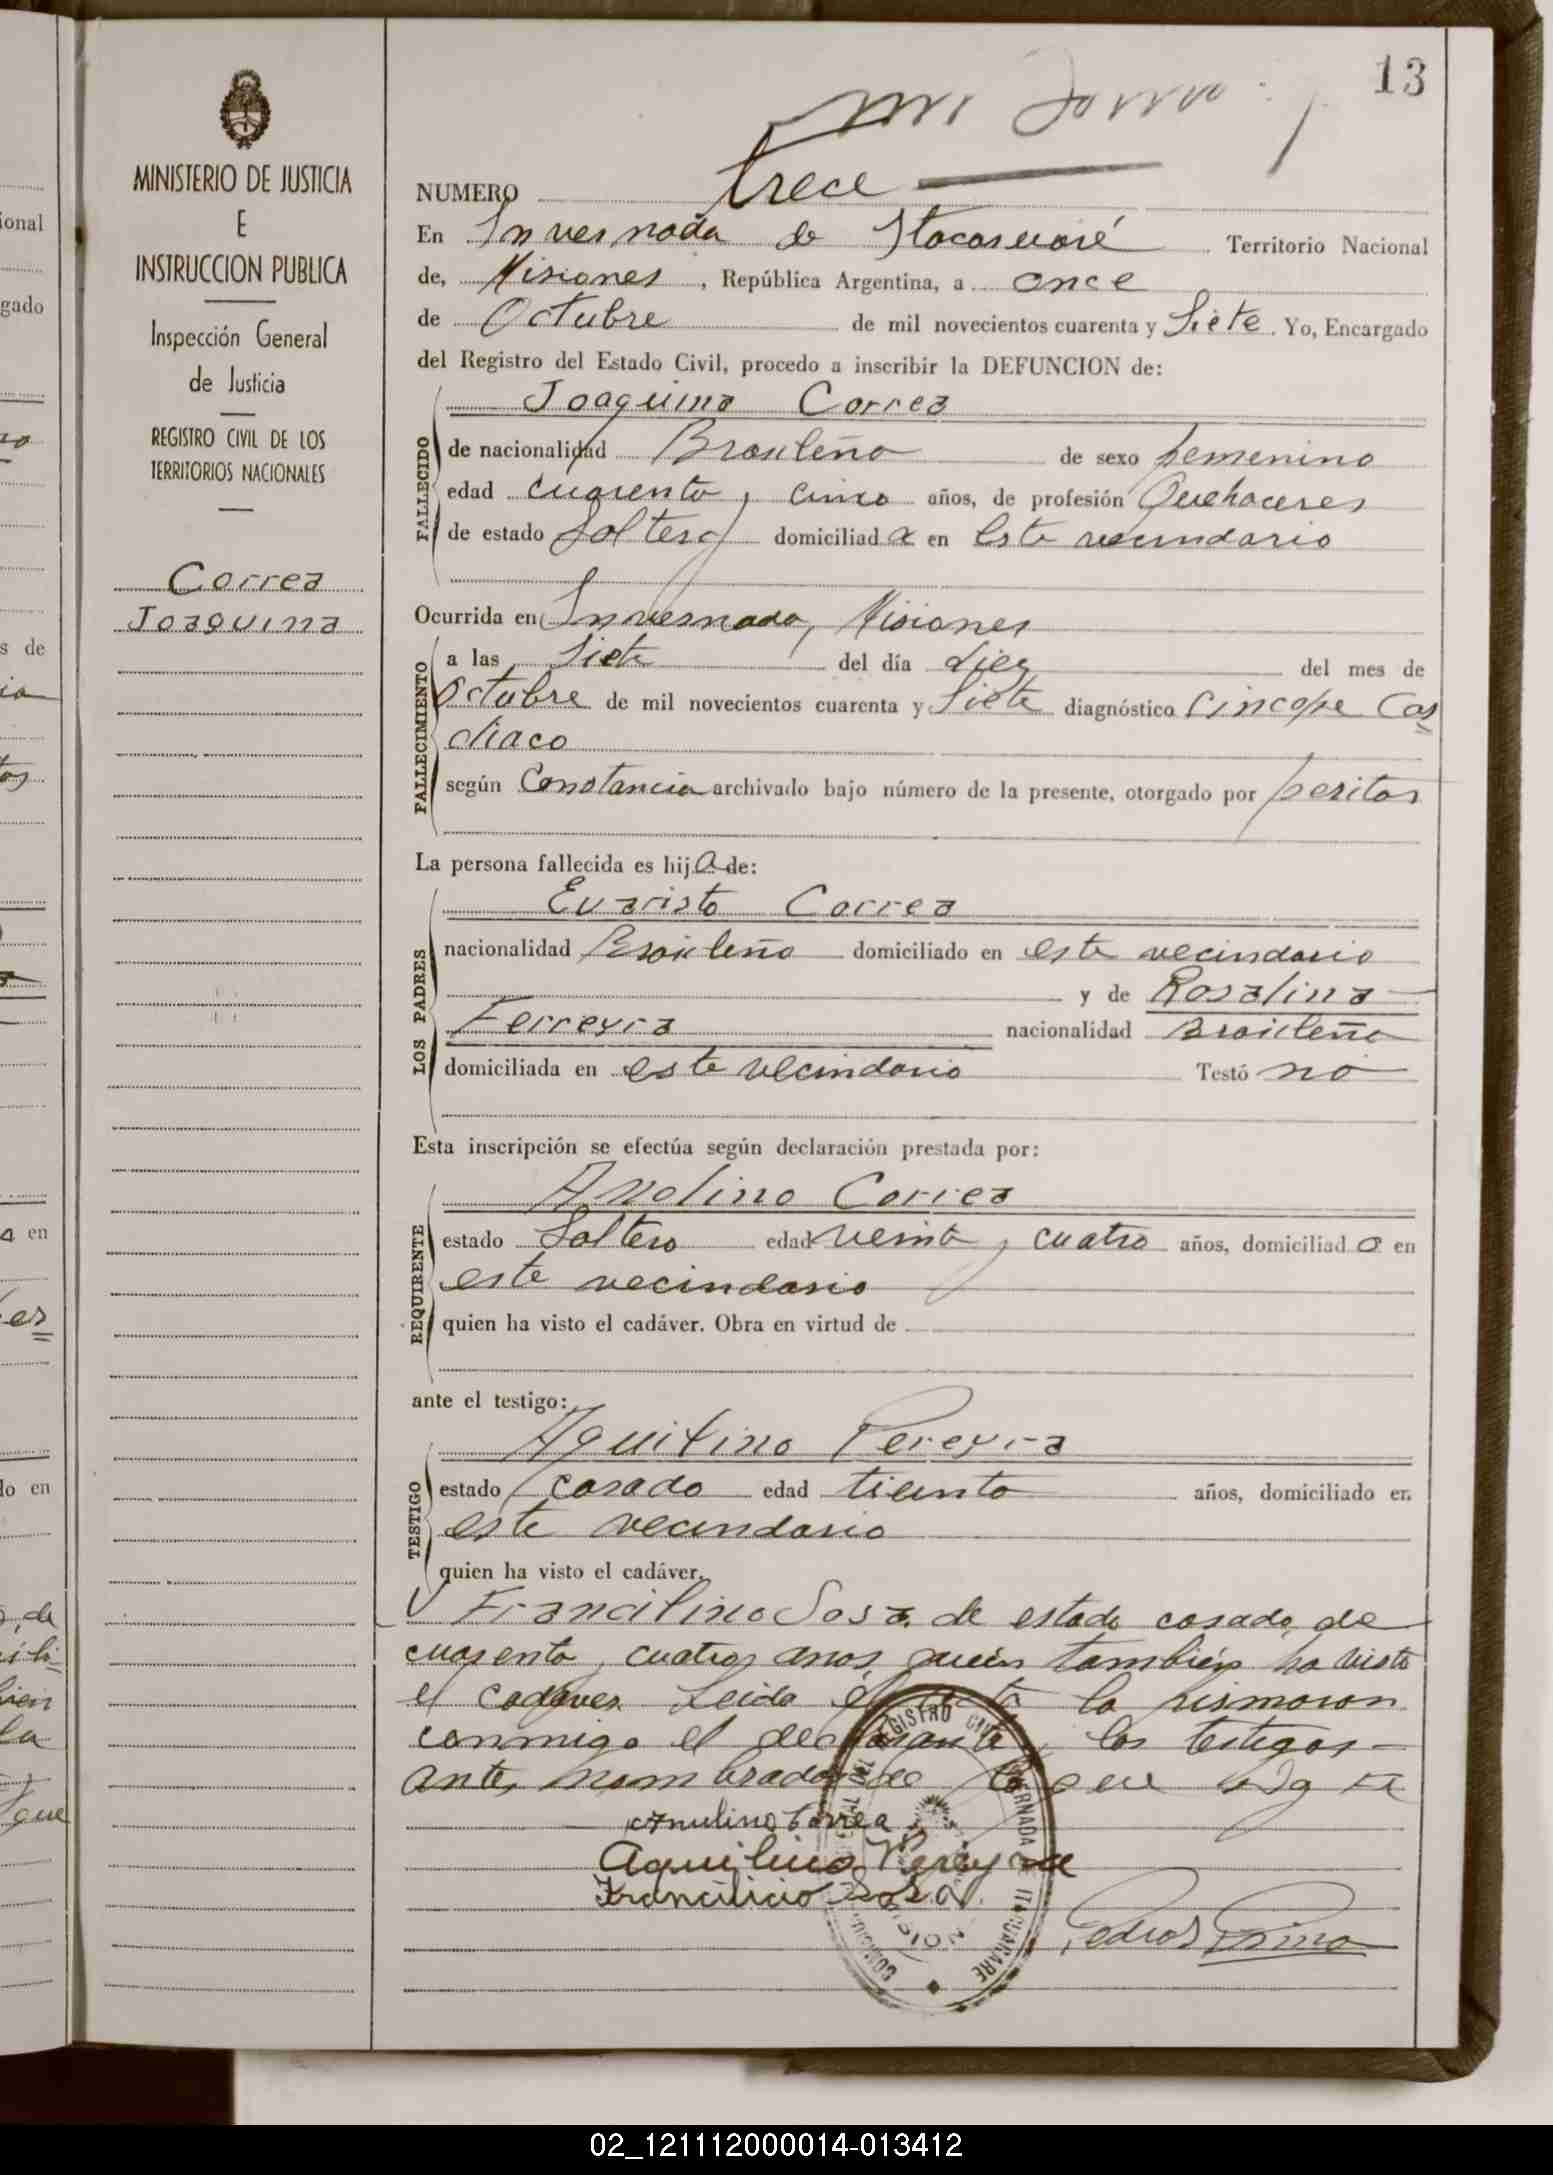 13
NUMERO trece
En Invernada de Itacaruaré Territorio Nacional
de, Misiones, República Argentina, a once
de Octubre de mil novecientos cuarenta y Siete. Yo, Encargado
del Registro del Estado Civil, procedo a inscribir la DEFUNCION de:
FALLECIDO
Joaquina Correa
de nacionalidad Brasileña de sexo femenino
edad cuarenta y cinco años, de profesión Quehaceres
de estado Soltera domiciliada en este vecindario
Ocurrida en Invernada, Misiones
FALLECIMIENTO
a las Siete del día diez del mes de
Octubre de mil novecientos cuarenta y Siete diagnóstico Sincope Car=
diaco
según Constancia archivado bajo número de la presente, otorgado por peritos
La persona fallecida es hija de:
LOS PADRES
Evaristo Correa
nacionalidad Brasileño domiciliado en este vecindario
y de Rosalina
Ferreyra nacionalidad Brasileña
domiciliada en este vecindario Testó no
Esta inscripción se efectúa según declaración prestada por:
REQUIRENTE
Avelino Correa
estado Soltero edad veinte y cuatro años, domiciliado en
este vecindario
quien ha visto el cadáver. Obra en virtud de
ante el testigo:
TESTIGO
Aquilino Pereyra
estado casado edad treinta años, domiciliado en
este vecindario
quien ha visto el cadáver.
Y Francilino Sosa de estado casado, de
cuarenta y cuatro anos quien también ha visto
el cadaver. Leida el acta la firmaron
conmigo el declarante y los testigos
antes nombrados de lo que
Aquilino Pereyra
Francilicio Sosa
REGISTRO CIVIL INVERNADA DE ITACARUARE
MISIONES
MINISTERIO DE JUSTICIA
E
INSTRUCCION PUBLICA
Inspección General
de Justicia
REGISTRO CIVIL DE LOS
TERRITORIOS NACIONALES
Correa
Joaquina
02_121112000014-013412